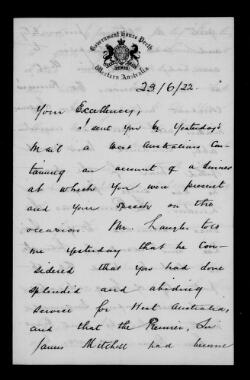 Government House Perth
Western Australia
23/6/22.
Your Excellency,
I sent you by yesterday's
mail a West Australian con-
taining an account of a dinner
at which you were present
and your speech on the
occasion. Mr. told
me yesterday that he con-
sidered that you had done
splendid and abiding
service for West Australia,
and that the Premier, Sir
James Mitchell had